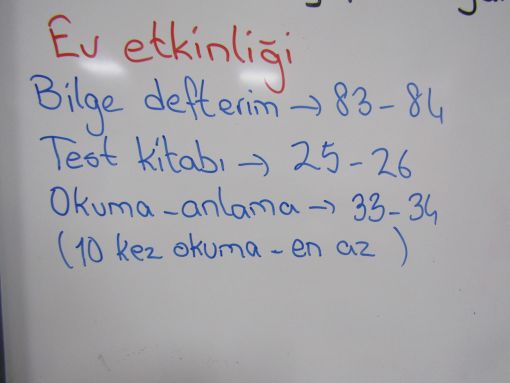 Ev etkinliği
Bilge defterim → 83-84
Test kitabı → 25-26
Okuma-anlama → 33-34
(10 kez okuma-en az )